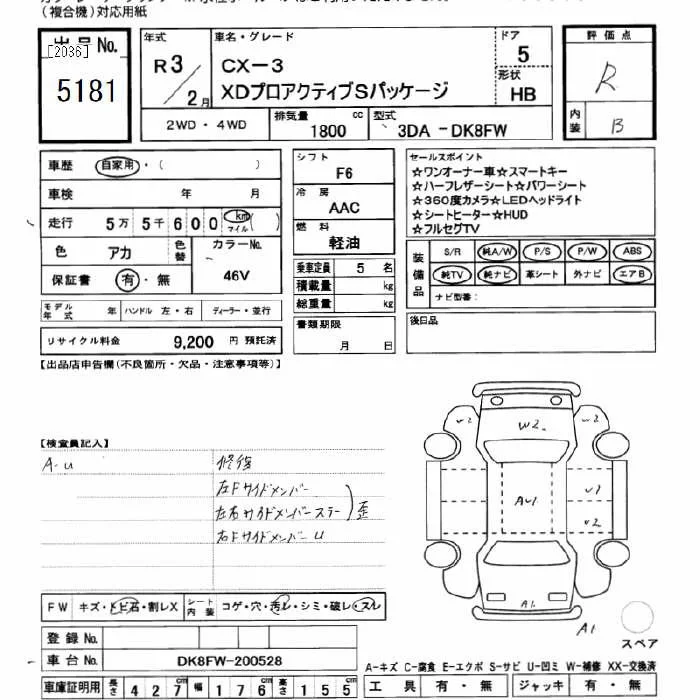 (複合機)対応用紙
出品No.
[2036]
5181
年式
R3/2月
車名・グレード
CX-3
XDプロアクティブSパッケージ
ドア
5
形状
HB
評価点
R
内装
B
2WD・4WD
排気量
1800 cc
型式
3DA-DK8FW
車歴 自家用・( )
車検 年 月
走行 5万5千600 km マイル ( )
色 アカ 色替 カラーNo. 46V
保証書 有・無
モデル年式 年 ハンドル 左・右 ディーラー・並行
リサイクル料金 9,200 円 預託済
シフト F6
冷房 AAC
燃料 軽油
乗車定員 5 名
積載量 kg
総重量 kg
書類期限
月 日
セールスポイント
☆ワンオーナー車☆スマートキー
☆ハーフレザーシート☆パワーシート
☆360度カメラ☆LEDヘッドライト
☆シートヒーター☆HUD
☆フルセグTV
装備品
S/R 純A/W P/S P/W ABS
純TV 純ナビ 革シート 外ナビ エアB
ナビ型番:
後日品
【出品店申告欄(不良箇所・欠品・注意事項等)】
【検査員記入】
A・U
修復
左Fサイドメンバー
左右サイドメンバーステー
歪
右FサイドメンバーU
W2
W2
U2
AU1
U1
U2
A1
A1
スペア
FW キズ・トビ石・割レX シート内装 コゲ・穴・汚レ・シミ・破レ・スレ
登録No.
車台No. DK8FW-200528
車庫証明用 長さ 427cm 幅 176cm 高さ 155cm
A-キズ C-腐食 E-エクボ S-サビ U-凹ミ W-補修 XX-交換済
工具 有・無 ジャッキ 有・無